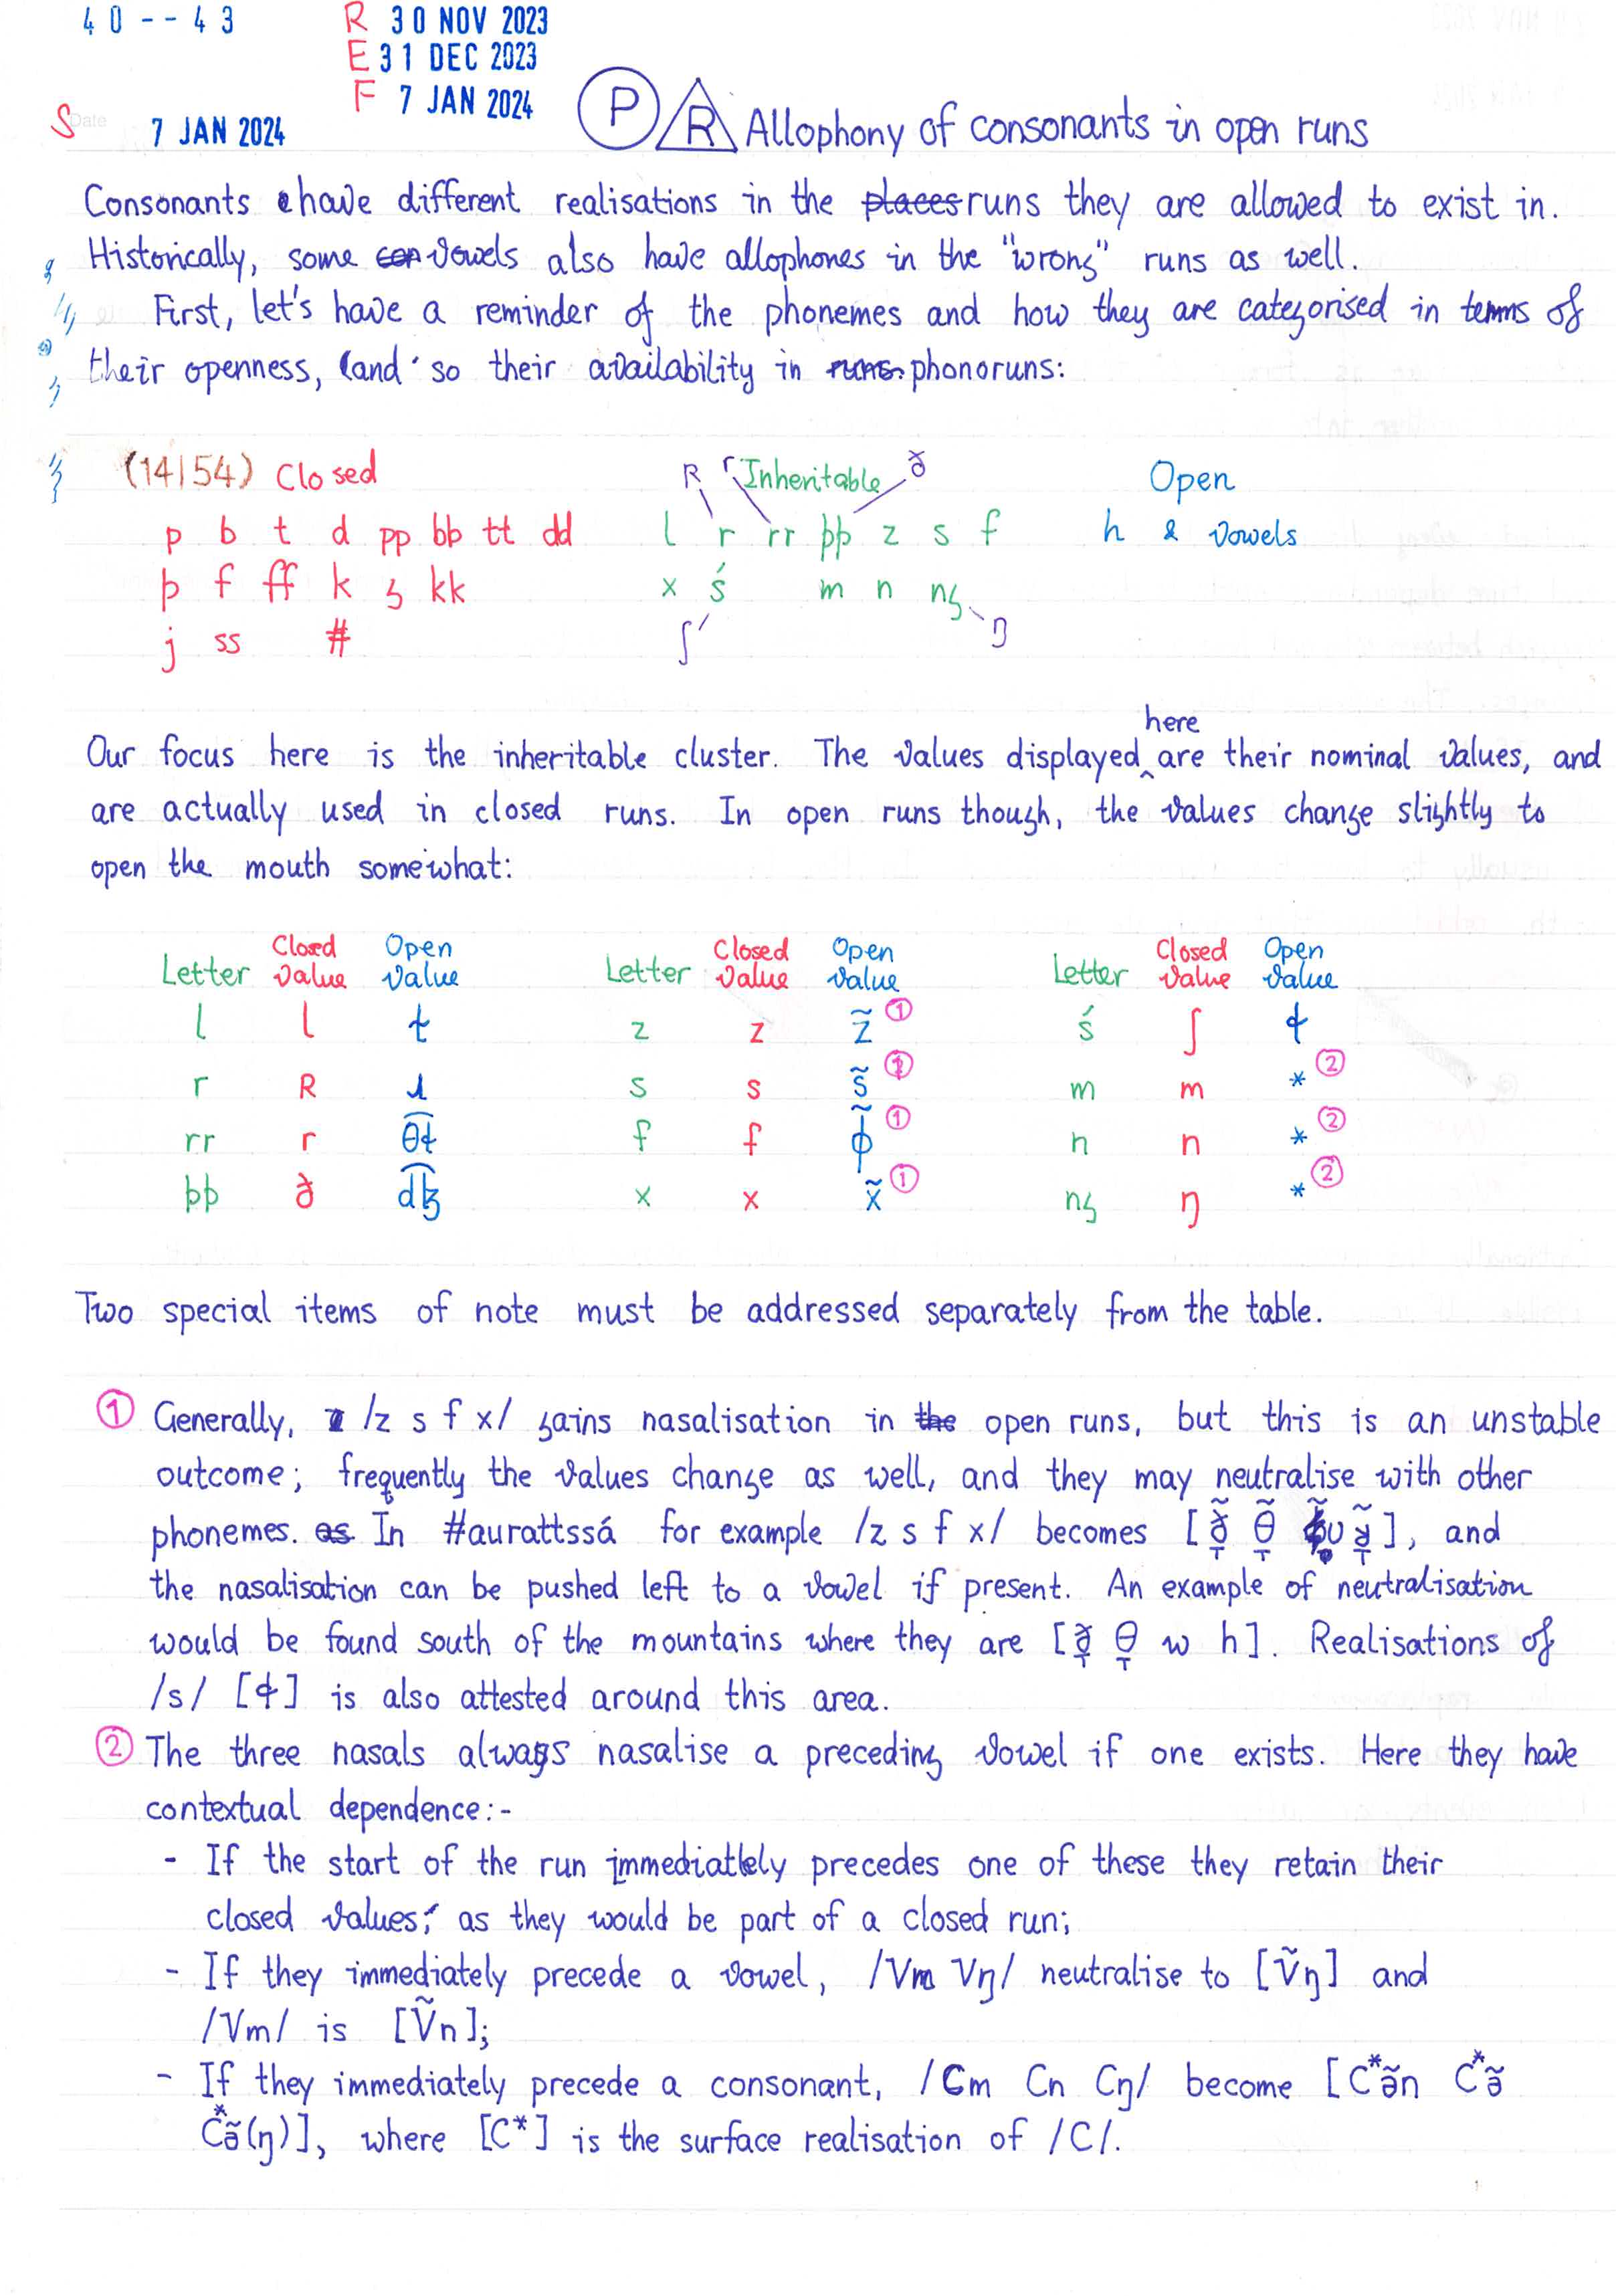 40--43
R 30 NOV 2023
E 31 DEC 2023
F 7 JAN 2024
S Date 7 JAN 2024
P R Allophony of consonants in open runs
Consonants have different realisations in the places runs they are allowed to exist in.
Historically, some con vowels also have allophones in the "wrong" runs as well.
First, let's have a reminder of the phonemes and how they are categorised in terms of
their openness, (and so their availability in runs. phonoruns:
(14|54) Closed R r Inheritable ð Open
p b t d pp bb tt dd l r rr þþ z s f h & vowels
þ f ff k ʒ kk x ś m n nʒ
j ss # ʃ ŋ
here
Our focus here is the inheritable cluster. The values displayed ‸ are their nominal values, and
are actually used in closed runs. In open runs though, the values change slightly to
open the mouth somewhat:
Letter Closed value Open value Letter Closed value Open value Letter Closed value Open value
l l ɬ z z z̃ ① ś ʃ ɬ
r R ɹ s s s̃ ① m m * ②
rr r θ͡ɬ f f ɸ̃ ① n n * ②
þþ ð d͡ɮ x x x̃ ① nʒ ŋ * ②
Two special items of note must be addressed separately from the table.
① Generally, /z s f x/ gains nasalisation in the open runs, but this is an unstable
outcome; frequently the values change as well, and they may neutralise with other
phonemes. as In #aurattssá for example /z s f x/ becomes [ð̞̃ θ̞̃ ʋ̃ ], and
the nasalisation can be pushed left to a vowel if present. An example of neutralisation
would be found south of the mountains where they are [ð̞̃ θ̞ w h]. Realisations of
/s/ [ɬ] is also attested around this area.
② The three nasals always nasalise a preceding vowel if one exists. Here they have
contextual dependence:-
- If the start of the run immediately precedes one of these they retain their
closed values, as they would be part of a closed run;
- If they immediately precede a vowel, /Vn Vŋ/ neutralise to [Ṽŋ] and
/Vm/ is [Ṽn];
- If they immediately precede a consonant, /Cm Cn Cŋ/ become [C*ə̃n C*ə̃
C*ə̃(ŋ)], where [C*] is the surface realisation of /C/.